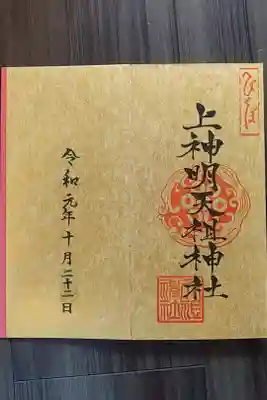 へびくぼ
上神明天祖神社
令和元年十月二十二日